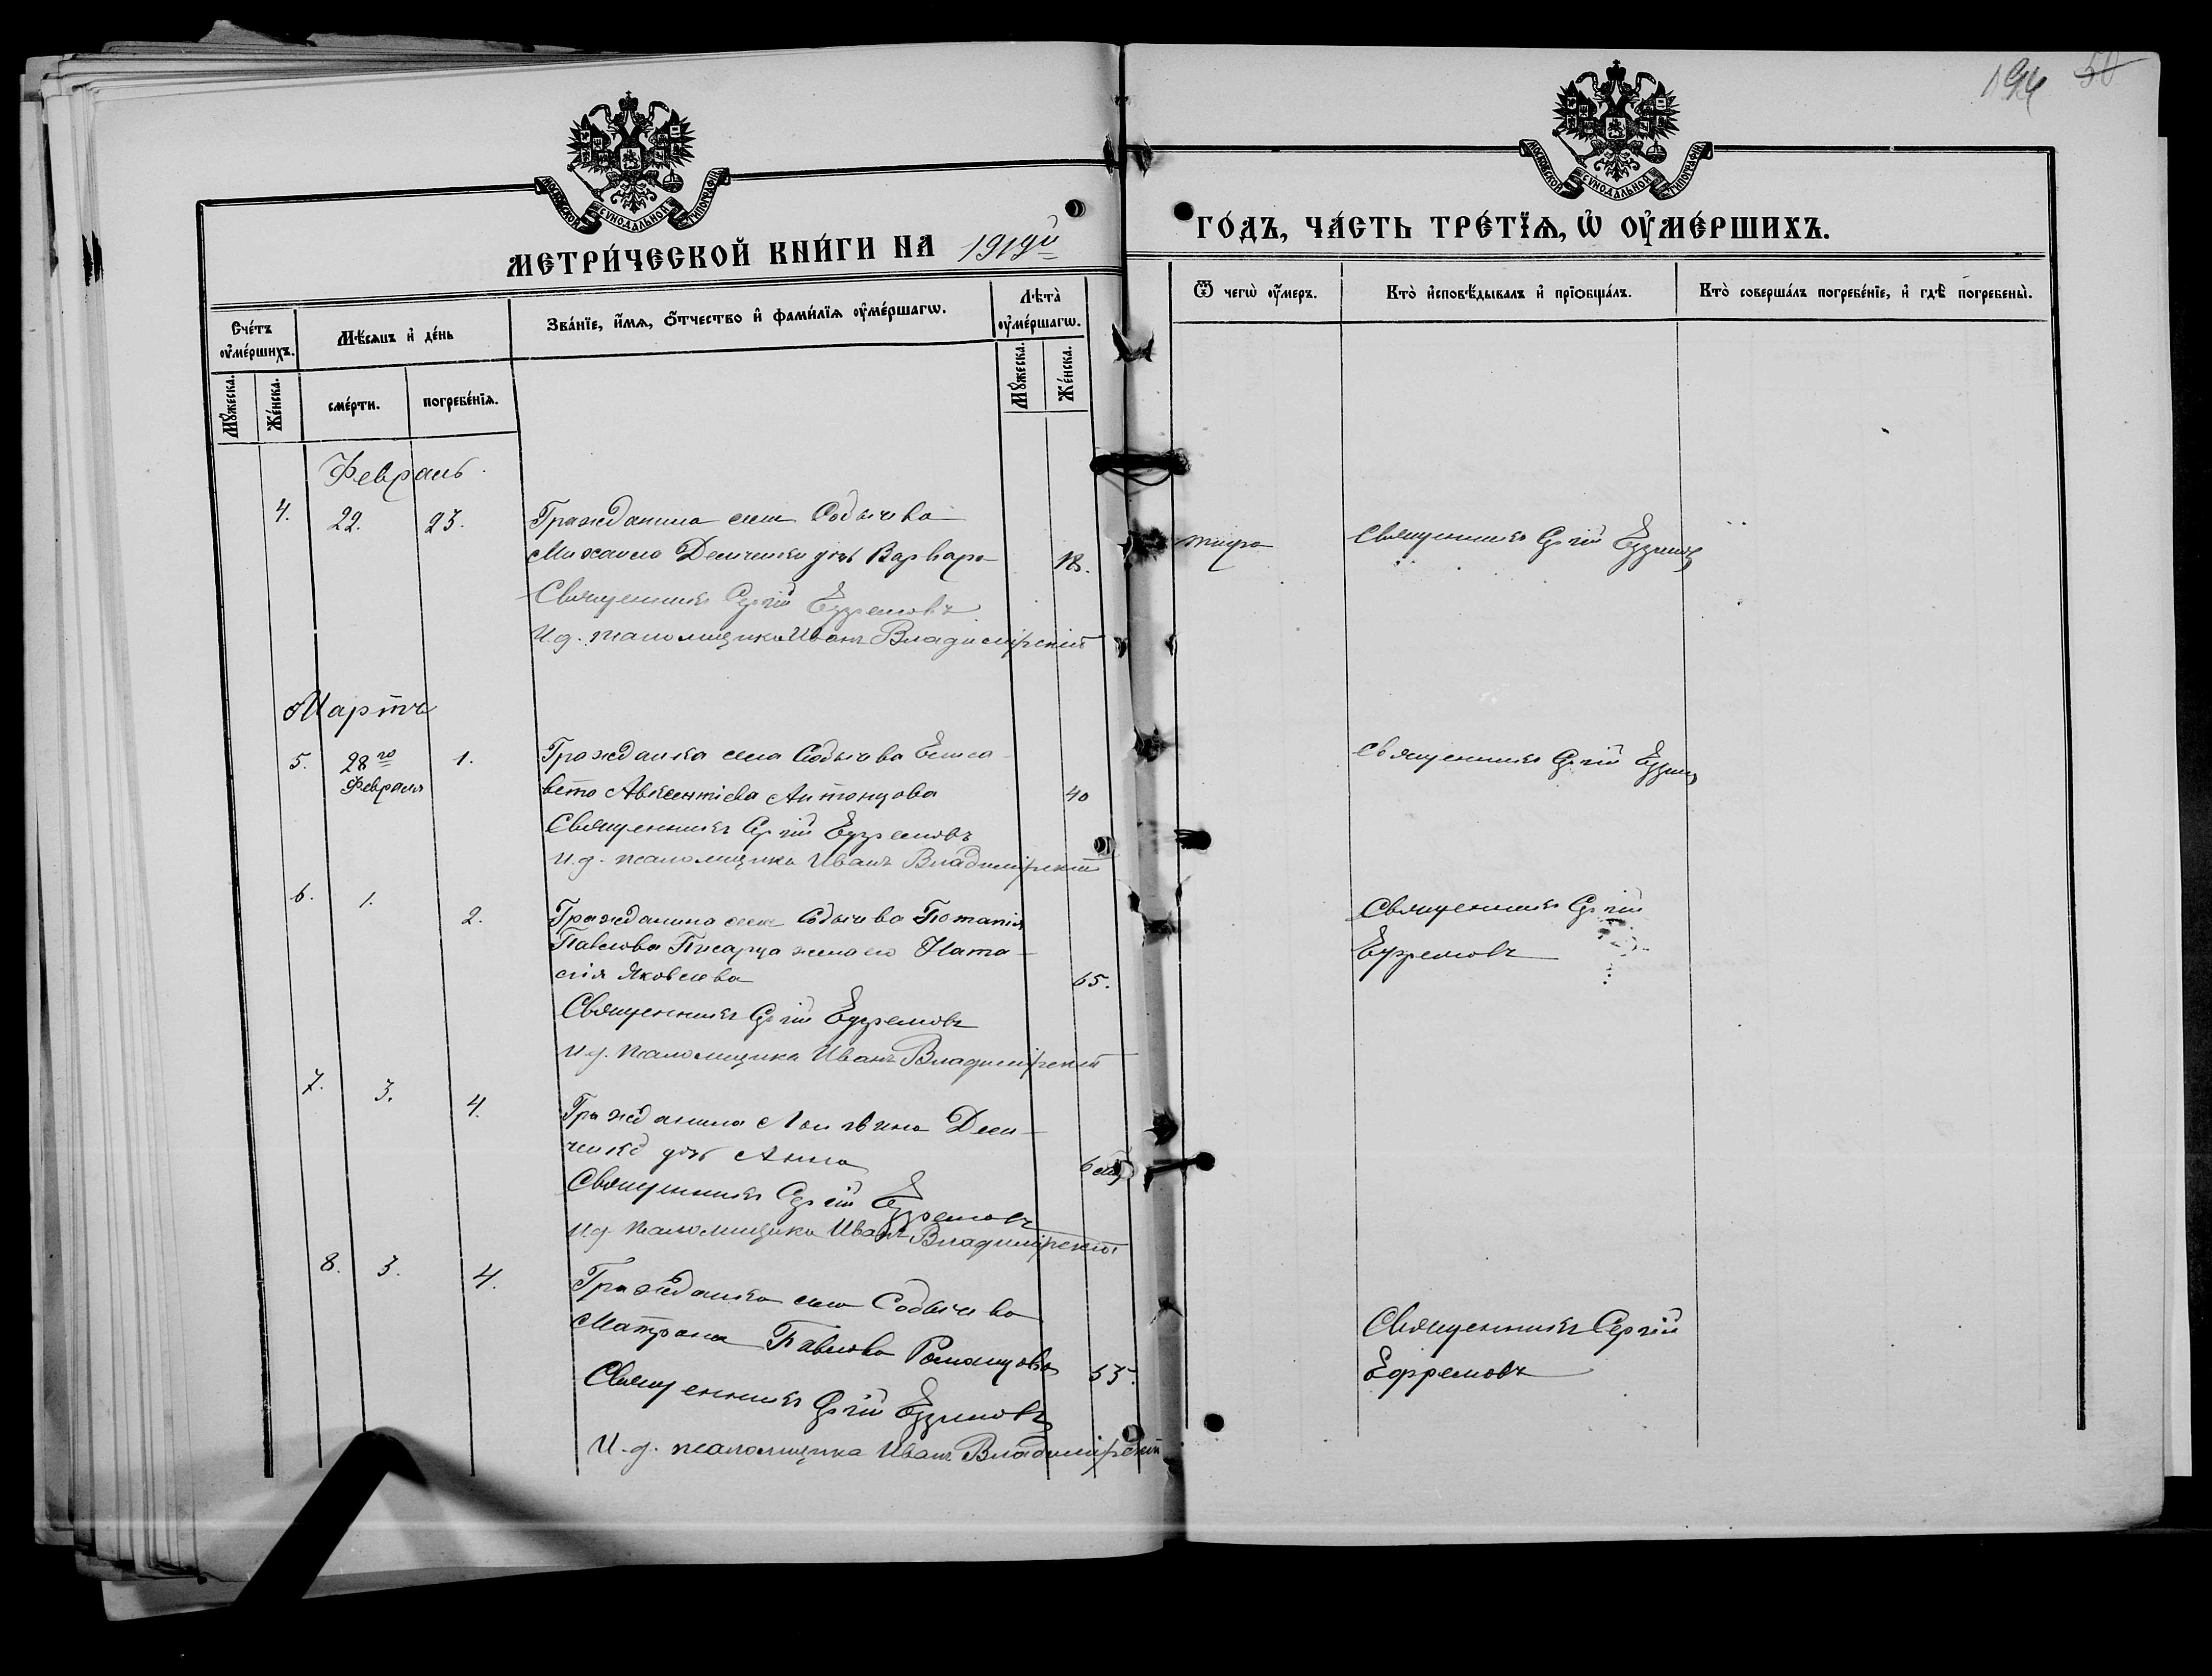 194 50
МОСКОВСКОЙ СѴНОДАЛЬНОЙ ТИПОГРАФІИ
МЕТРИ́ЧЕСКОЙ КНИ́ГИ НА 1919й
Сче́тъ ᲂумéршихъ.
Мѣ́сѧцъ и҆ дéнь
Звáнїе, и҆́мѧ, ѻ҆́тчество и҆ фами́лїѧ ᲂумéршагѡ.
Лѣ́та ᲂумéршагѡ.
Мꙋ́жеска.
Же́нска.
смéрти.
погребéнїѧ.
Мꙋ́жеска.
Же́нска.
Февраль
4. 22. 23. Гражданина села Собычева
Михаила Демченки дочь Варвара 18.
Священникъ Сергій Ефремовъ
И.д. псаломщика Иванъ Владимірскій
Мартъ
5. 28го Февраля 1. Гражданка села Собычева Елиса-
вета Авксентіева Антонцова 40
Священникъ Сергій Ефремовъ
И.д. псаломщика Иванъ Владимірскій
6. 1. 2. Гражданина села Собычева Потапія
Павлова Писарца жена его Ната-
лія Яковлева 65.
Священникъ Сергій Ефремовъ
И.д. псаломщика Иванъ Владимірскій
7. 3. 4. Гражданина Логвина Дем-
ченко дочь Анна 6 мѣс
Священникъ Сергій Ефремовъ
И.д. псаломщика Иванъ Владимірскій
8. 3. 4. Гражданка села Собычева
Матрона Павлова Романцова 53.
Священникъ Сергій Ефремовъ
И.д. псаломщика Иванъ Владимірскій
МОСКОВСКОЙ СѴНОДАЛЬНОЙ ТИПОГРАФІИ
ГО́ДЪ, ЧА́СТЬ ТРЕ́ТЇѦ, Ѡ҆ ОУ҆МЕ́РШИХЪ.
Ѿ чегѡ̀ ᲂу҆́меръ.
Кто̀ и҆сповѣ́дывалъ и҆ прїѡбщáлъ.
Кто̀ совершáлъ погребéнїе, и҆ гдѣ̀ погребены̀.
тифа Священникъ Сергій Ефремовъ
Священникъ Сергій Ефремовъ
Священникъ Сергій
Ефремовъ
Священникъ Сергій
Ефремовъ